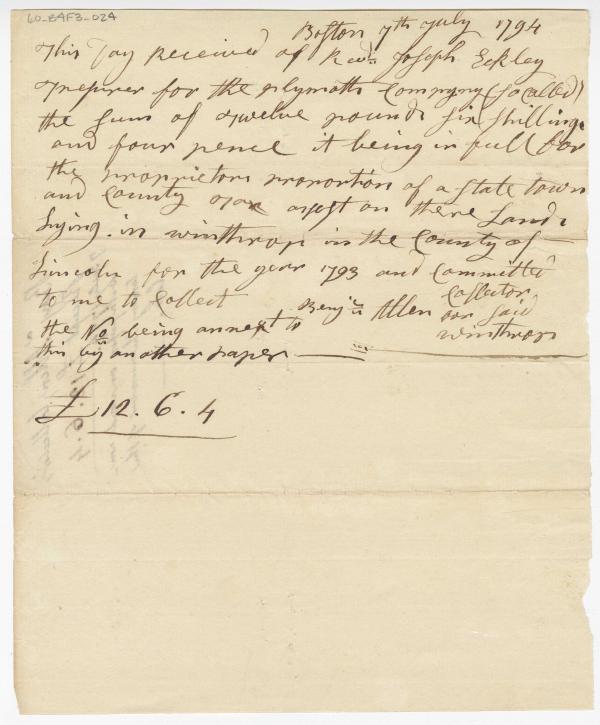 60_B4F3_024
Boston 7th July 1794
This Day Received of Revd. Joseph Eckley
Tresurer for the Plymoth Company (so called)
the sum of Twelve pounds six shillings
and four pence it being in full for
the proprietors proportion of a State town
and County tax assest on there Lands
Lying in winthrop in the County of
Lincoln for the year 1793 and Committed
to me to Collect
Benjn Allen Collector
for said
winthrop
the No being annext to
this by another paper
£ 12. 6. 4